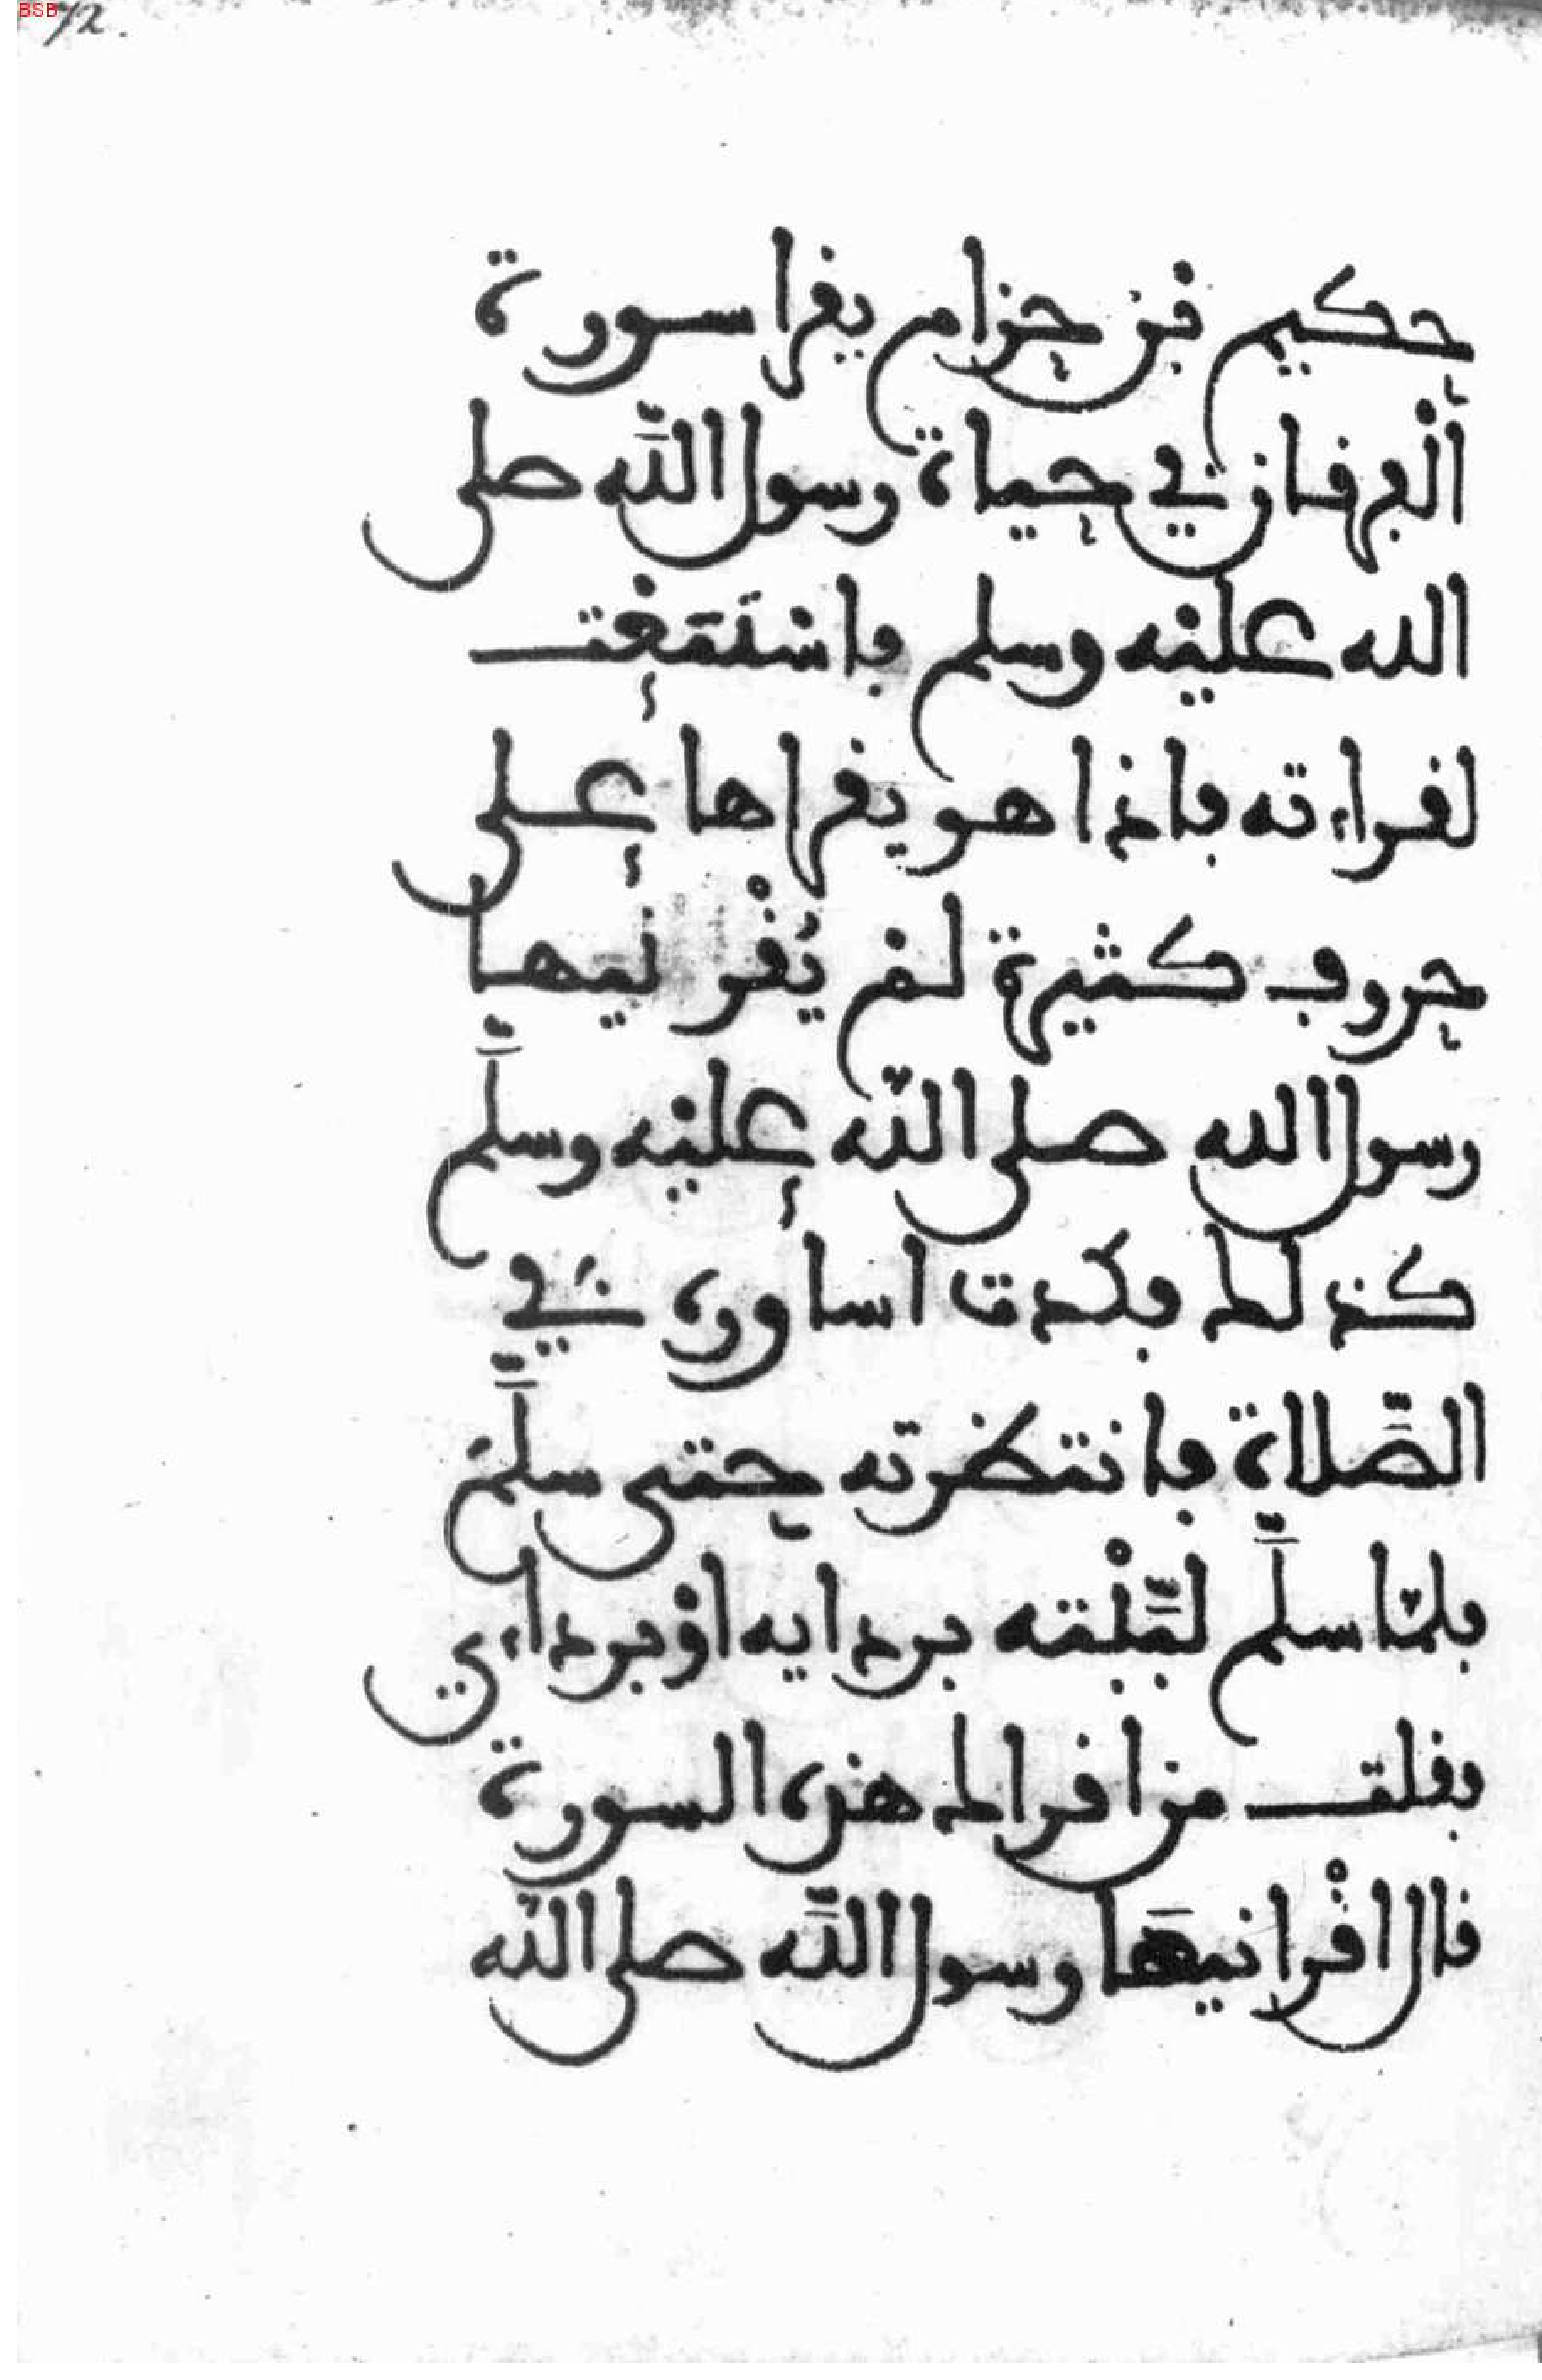 BSB
72.
حكيم بن حزام يقرا سورة
ألفرقان في حياة رسول اللّه صلى
الله عليْه وسلم فاسْتَمَعْت
لقراءته فاذا هو يقراها على
حروف كثيرة لمْ يُقْرِنيها
رسول الله صلى اللّه عليْه وسلَّم
كذلك فكدت اساوره في
الصَّلاة فانتظرته حتى سلم
فلمّا سلَّم لبَّبْته بردايه اوْ برداءي
فقلت من اقراك هذه السورة
قال اقْرانيهَا رسول اللَّه صلى اللّه